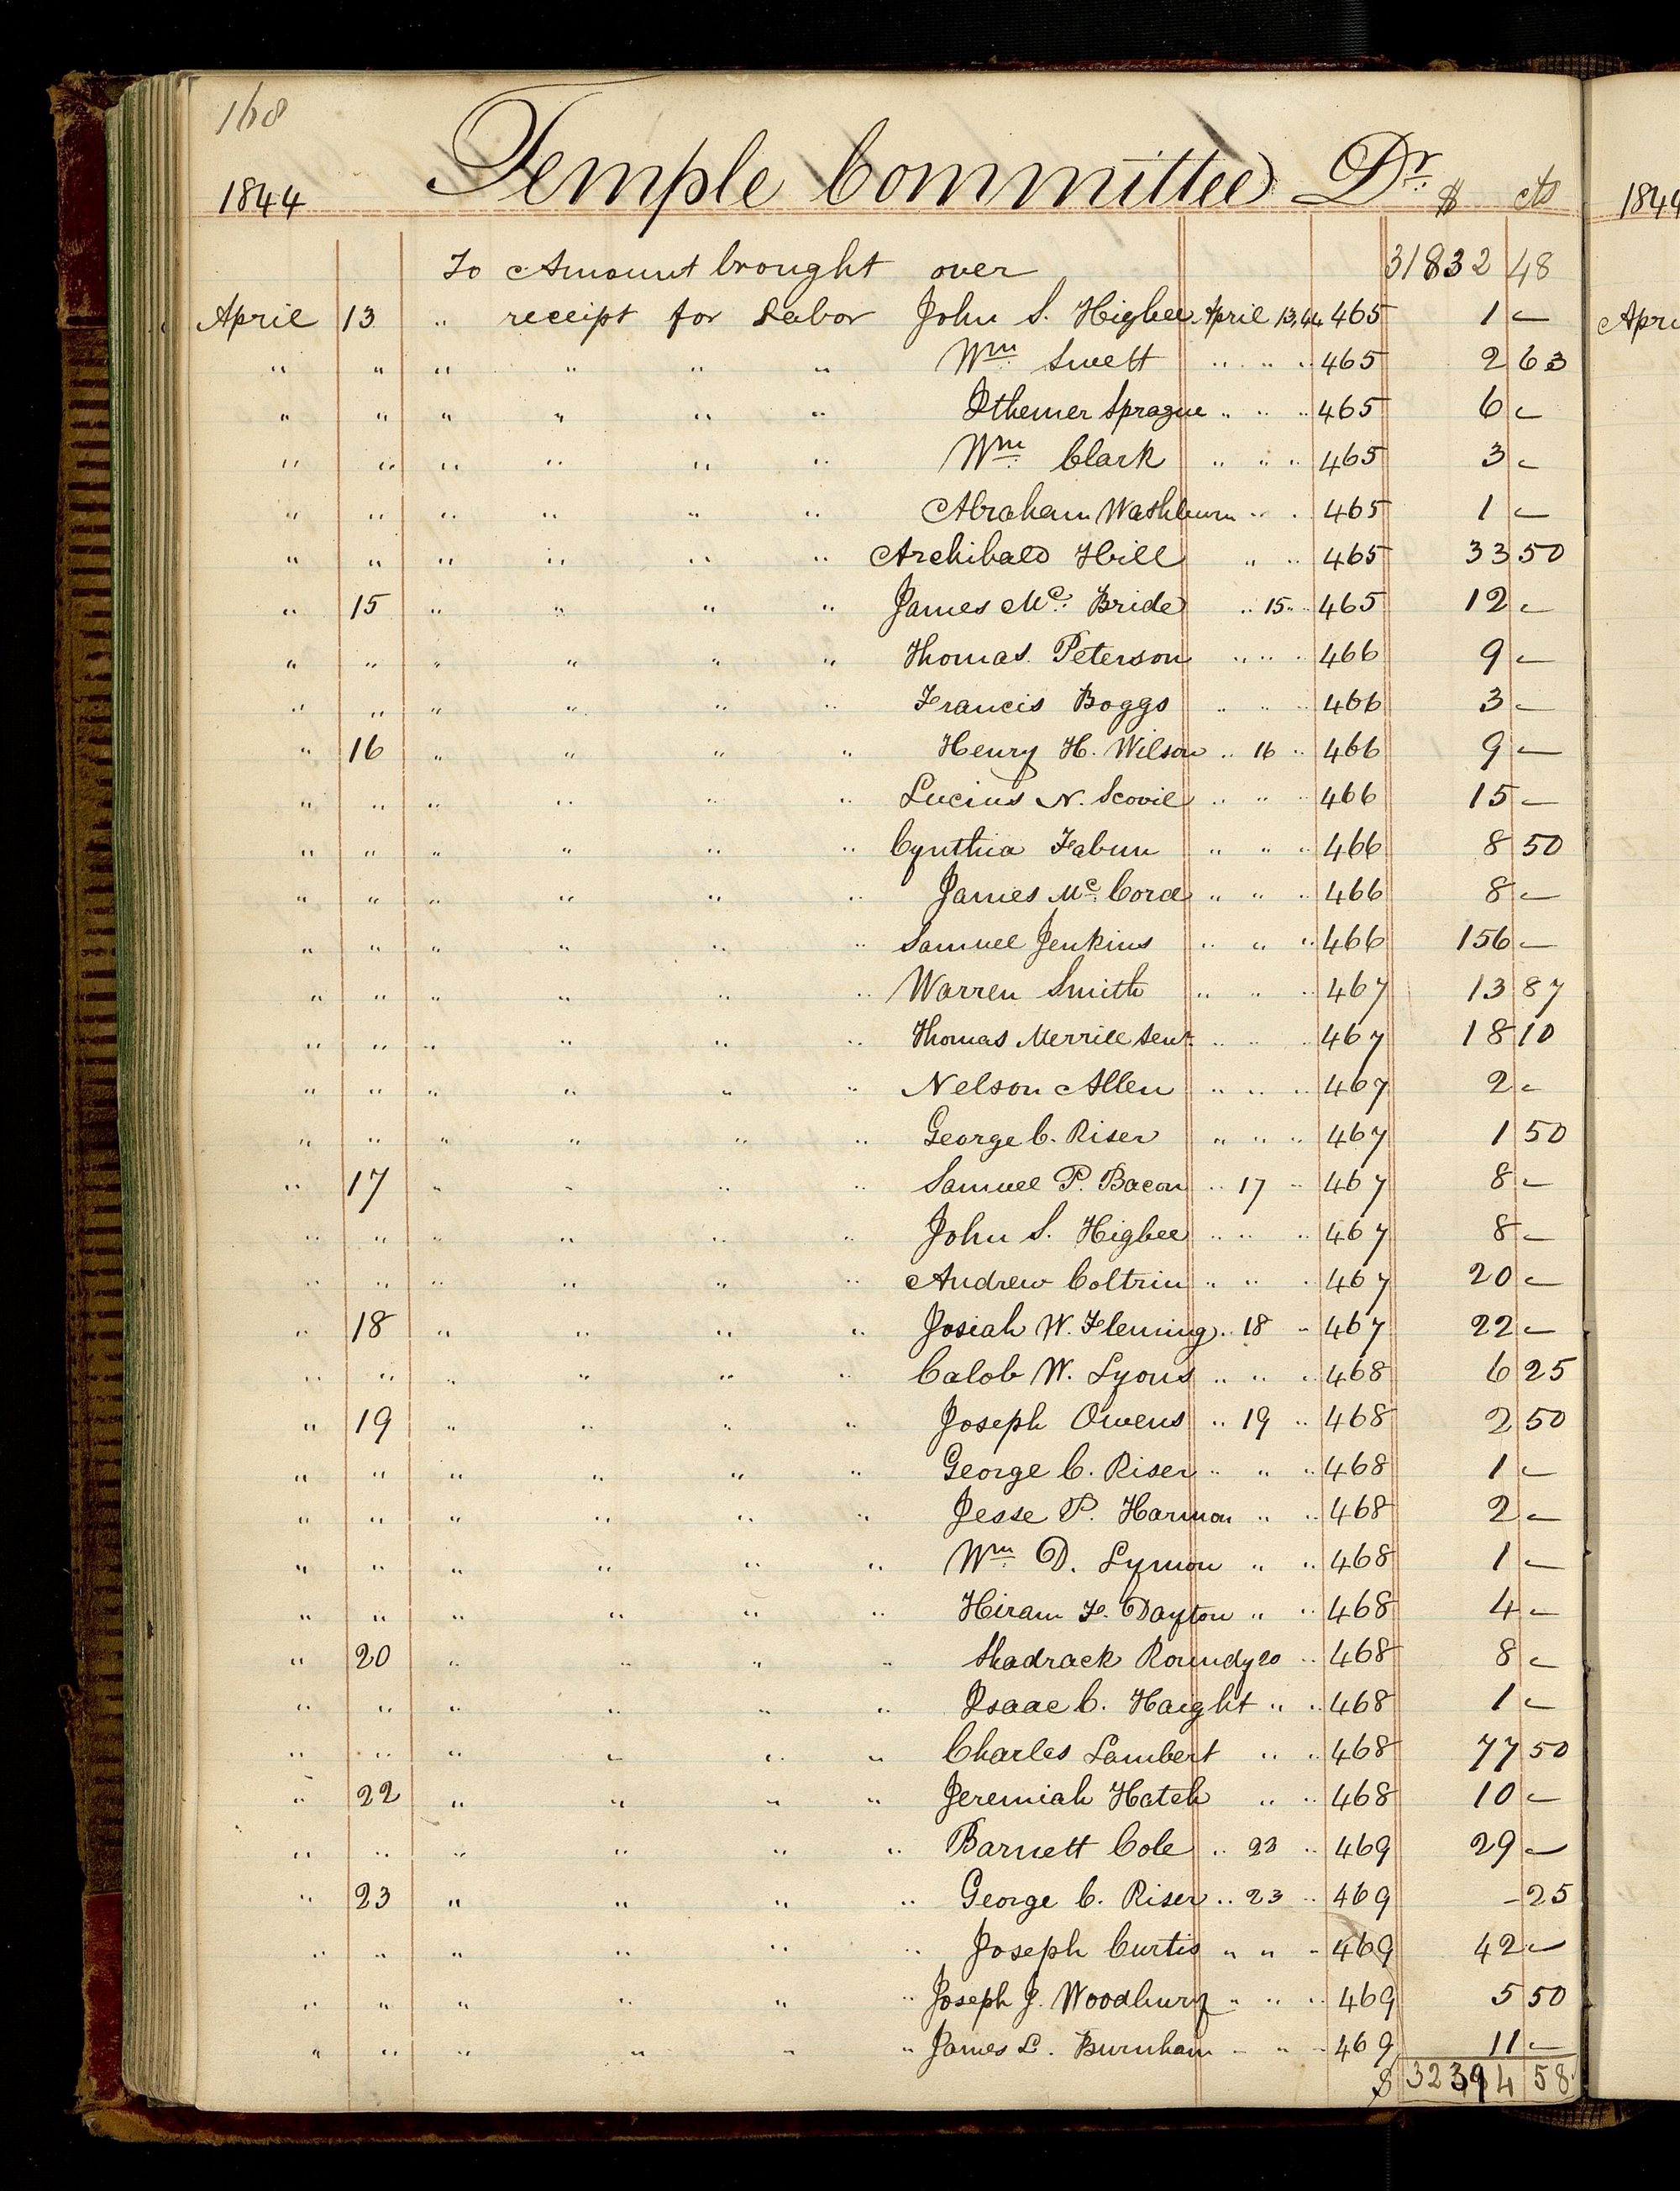 168
1844 Temple Committee Dr. $ cts
To Amount brought over 31832 48
April 13 " receipt for Labor John S. Higbee April 13, 44 465 1 -
" " " " " " Wm Swett " " " 465 2 63
" " " " " " Ithemer Sprague " " " 465 6 -
" " " " " " Wm Clark " " " 465 3 -
" " " " " " Abraham Washburn " " 465 1 -
" " " " " " Archibald Hill " " 465 33 50
" 15 " " " " James Mc. Bride " 15 " " 465 12 -
" " " " " " Thomas Peterson " " " " 466 9 -
" " " " " " Francis Boggs " " " 466 3 -
" 16 " " " " Henry H. Wilson " 16 " 466 9 -
" " " " " " Lucius N. Scovil " " " 466 15 -
" " " " " " Cynthia Fabun " " " 466 8 50
" " " " " " James Mc Cord " " " 466 8 -
" " " " " " Samuel Jenkins " " " 466 156 -
" " " " " " Warren Smith " " " 467 13 87
" " " " " " Thomas Merrill Senr. " " " 467 18 10
" " " " " " Nelson Allen " " " 467 2 -
" " " " " " George C. Riser " " " 467 1 50
" 17 " " " " Samuel P. Bacon " 17 " 467 8 -
" " " " " " John S. Higbee " " " 467 8 -
" " " " " " Andrew Coltrin " " " 467 20 -
" 18 " " " " Josiah W. Fleming " 18 " 467 22 -
" " " " " " Calob W. Lyons " " " 468 6 25
" 19 " " " " Joseph Owens " 19 " 468 2 50
" " " " " " George C. Riser " " " 468 1 -
" " " " " " Jesse P. Harmon " " 468 2 -
" " " " " " Wm D. Lymon " " 468 1 -
" " " " " " Hiram F. Dayton " " 468 4 -
" 20 " " " " Shadrack Roundy 20 " 468 8 -
" " " " " " Isaac C. Haight " " 468 1 -
" " " " " " Charles Lambert " " 468 77 50
" 22 " " " " Jeremiah Hatch " " 468 10 -
" " " " " " Barnett Cole " 23 " 469 29 -
" 23 " " " " George C. Riser " 23 " 469 - 25
" " " " " " Joseph Curtis " " " 469 42 -
" " " " " " Joseph J. Woodbury " " " 469 5 50
" " " " " " James L. Burnham " " " 469 11 -
$ 32394 58
1844
Apri